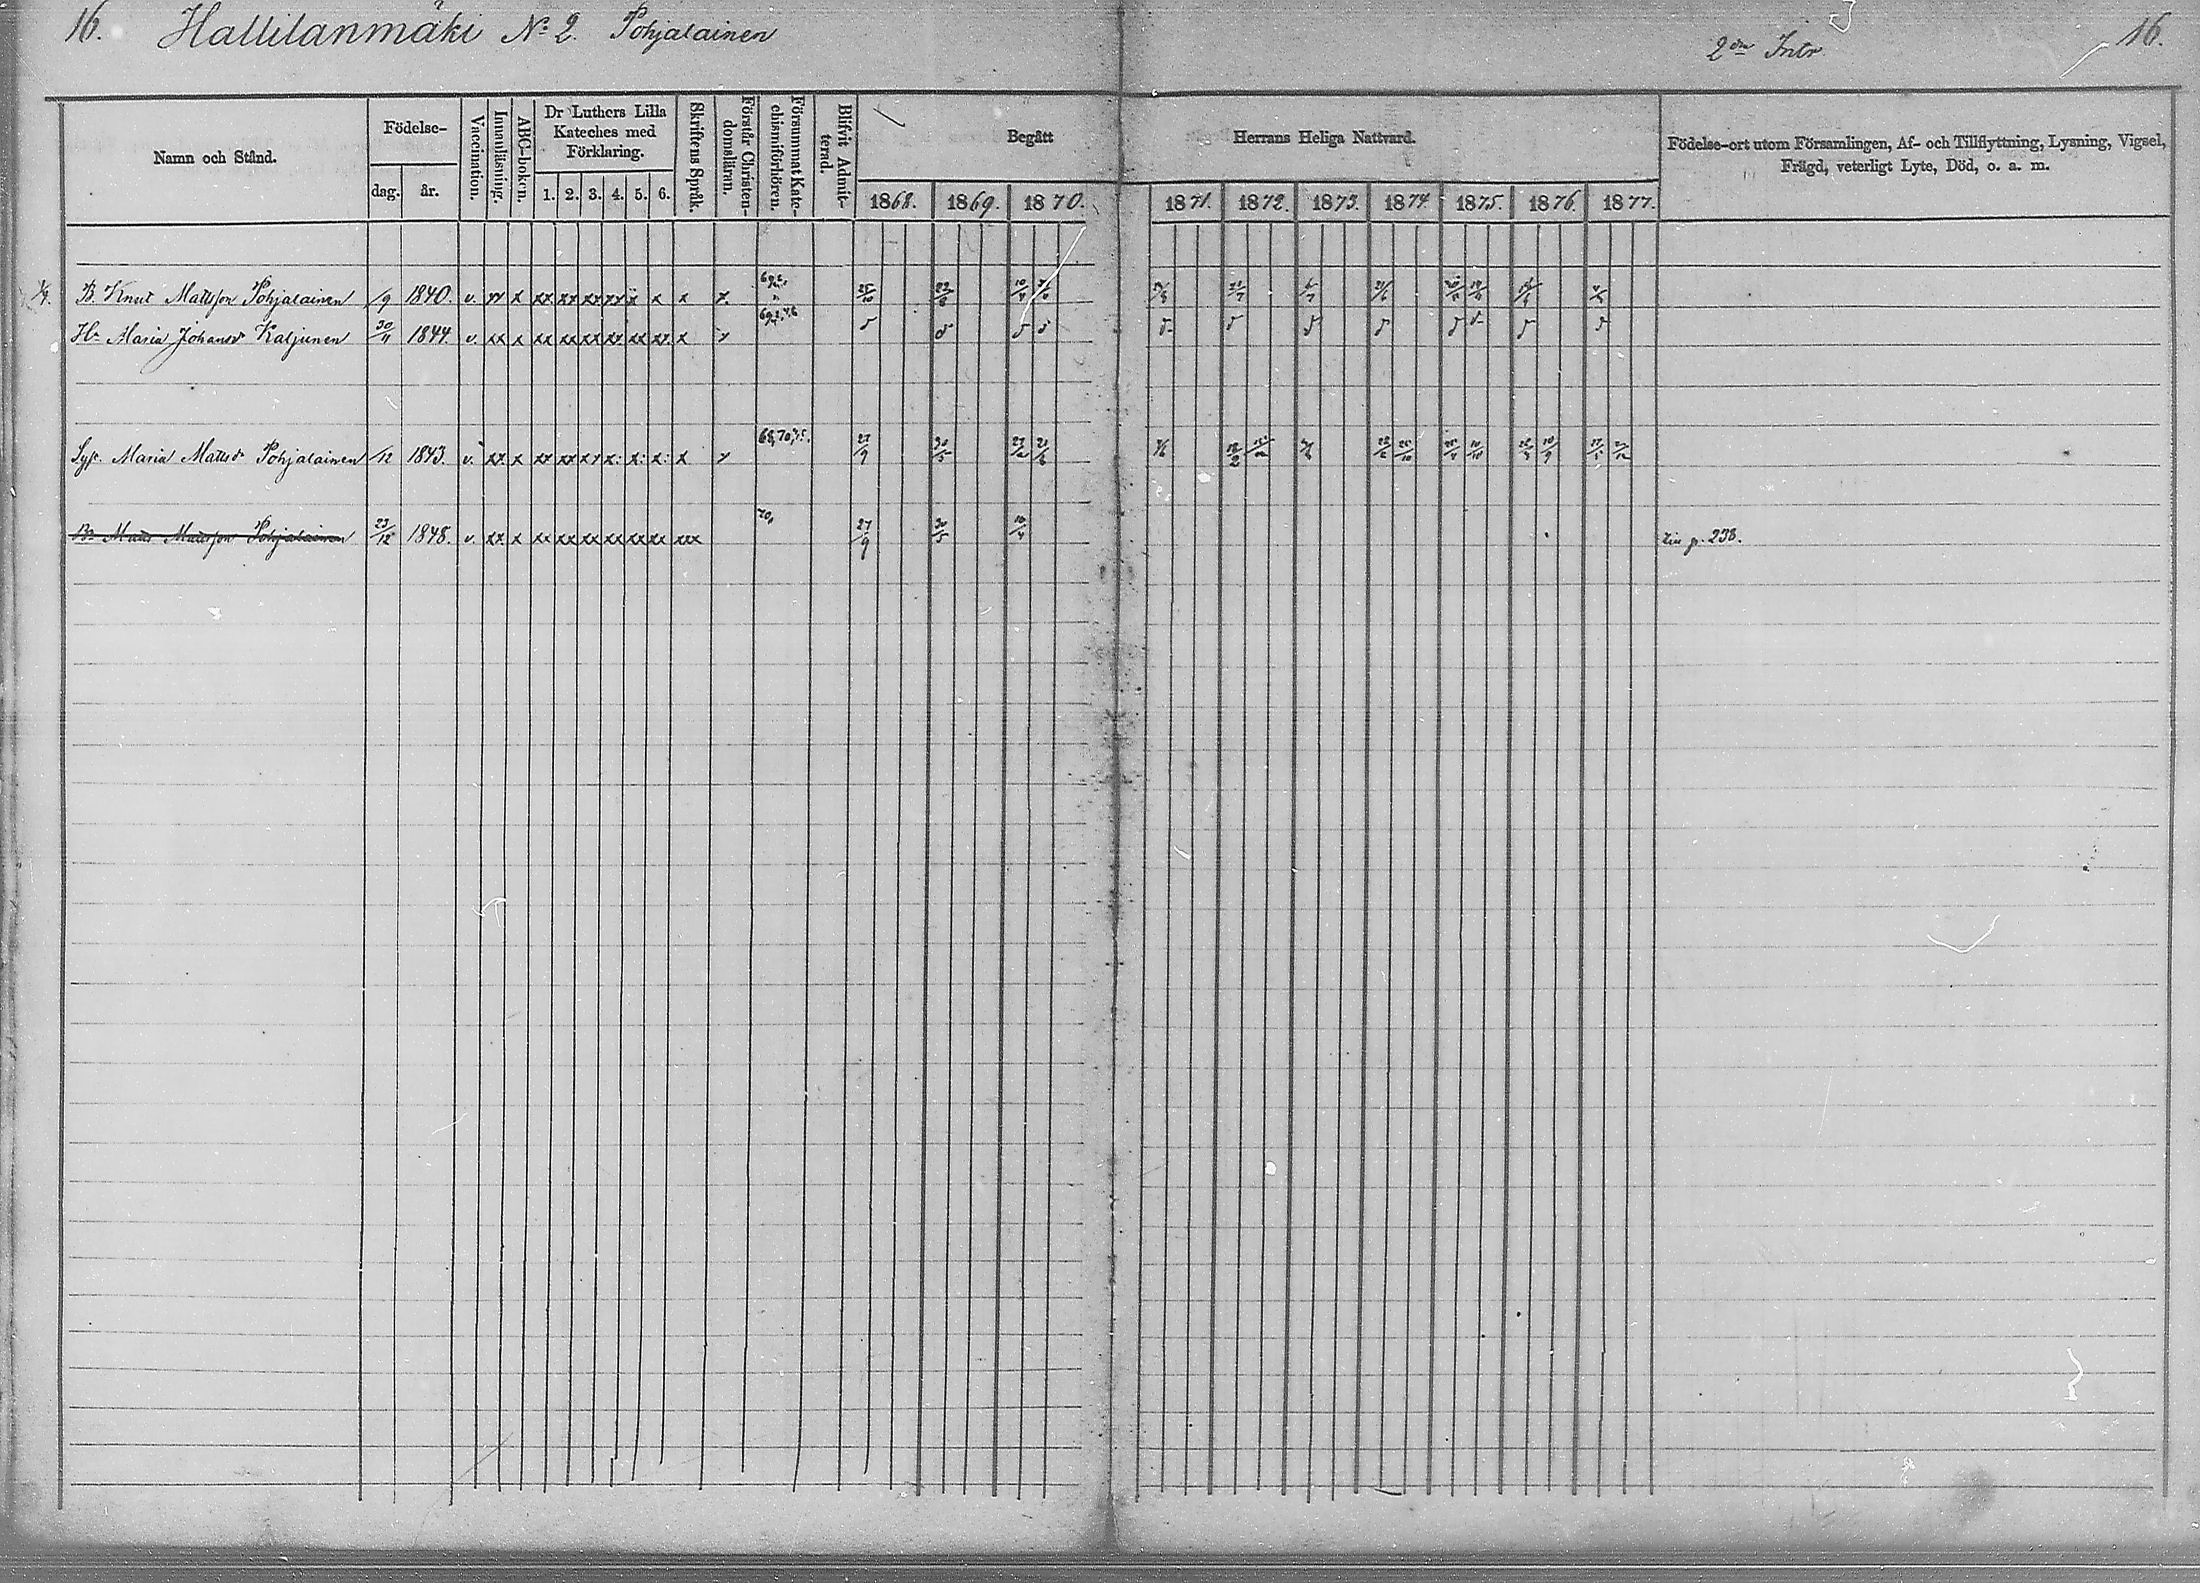 16. Hallilanmäki No 2. Pohjalainen
2dn Intr. 16.
Namn och Stånd.
Födelse-
dag. år.
Vaccination.
Innanläsning.
ABC-boken.
Dr Luthers Lilla
Kateches med
Förklaring.
1. 2. 3. 4. 5. 6.
Skriftens Språk.
Förstår Christen-
domsläran.
Försummat Kate-
chismiförhören.
Blifvit Admit-
terad.
Begått Herrans Heliga Nattvard.
1868. 1869. 1870. 1871. 1872. 1873. 1874. 1875. 1876. 1877.
Födelse-ort utom Församlingen, Af- och Tillflyttning, Lysning, Vigsel,
Frägd, veterligt Lyte, Död, o. a. m.
B. Knut Mattsson Pohjalainen /9 1840. v. xx x xx xx xx xx x x x x
Hu Maria Johansdr Kaljunen 30/11 1844. v. xx x xx xx xx xx xx xx x x
Sys. Maria Mattsdr Pohjalainen /12 1843. v. xx x xx xx xx x: x: x: x x 68,70,75. 27/9 30/5
Br Matts Mattsson Pohjalainen 23/12 1848. v. xx x xx xx xx xx xx xx xxx 70, 27/9 30/5 10/4 p. 238.